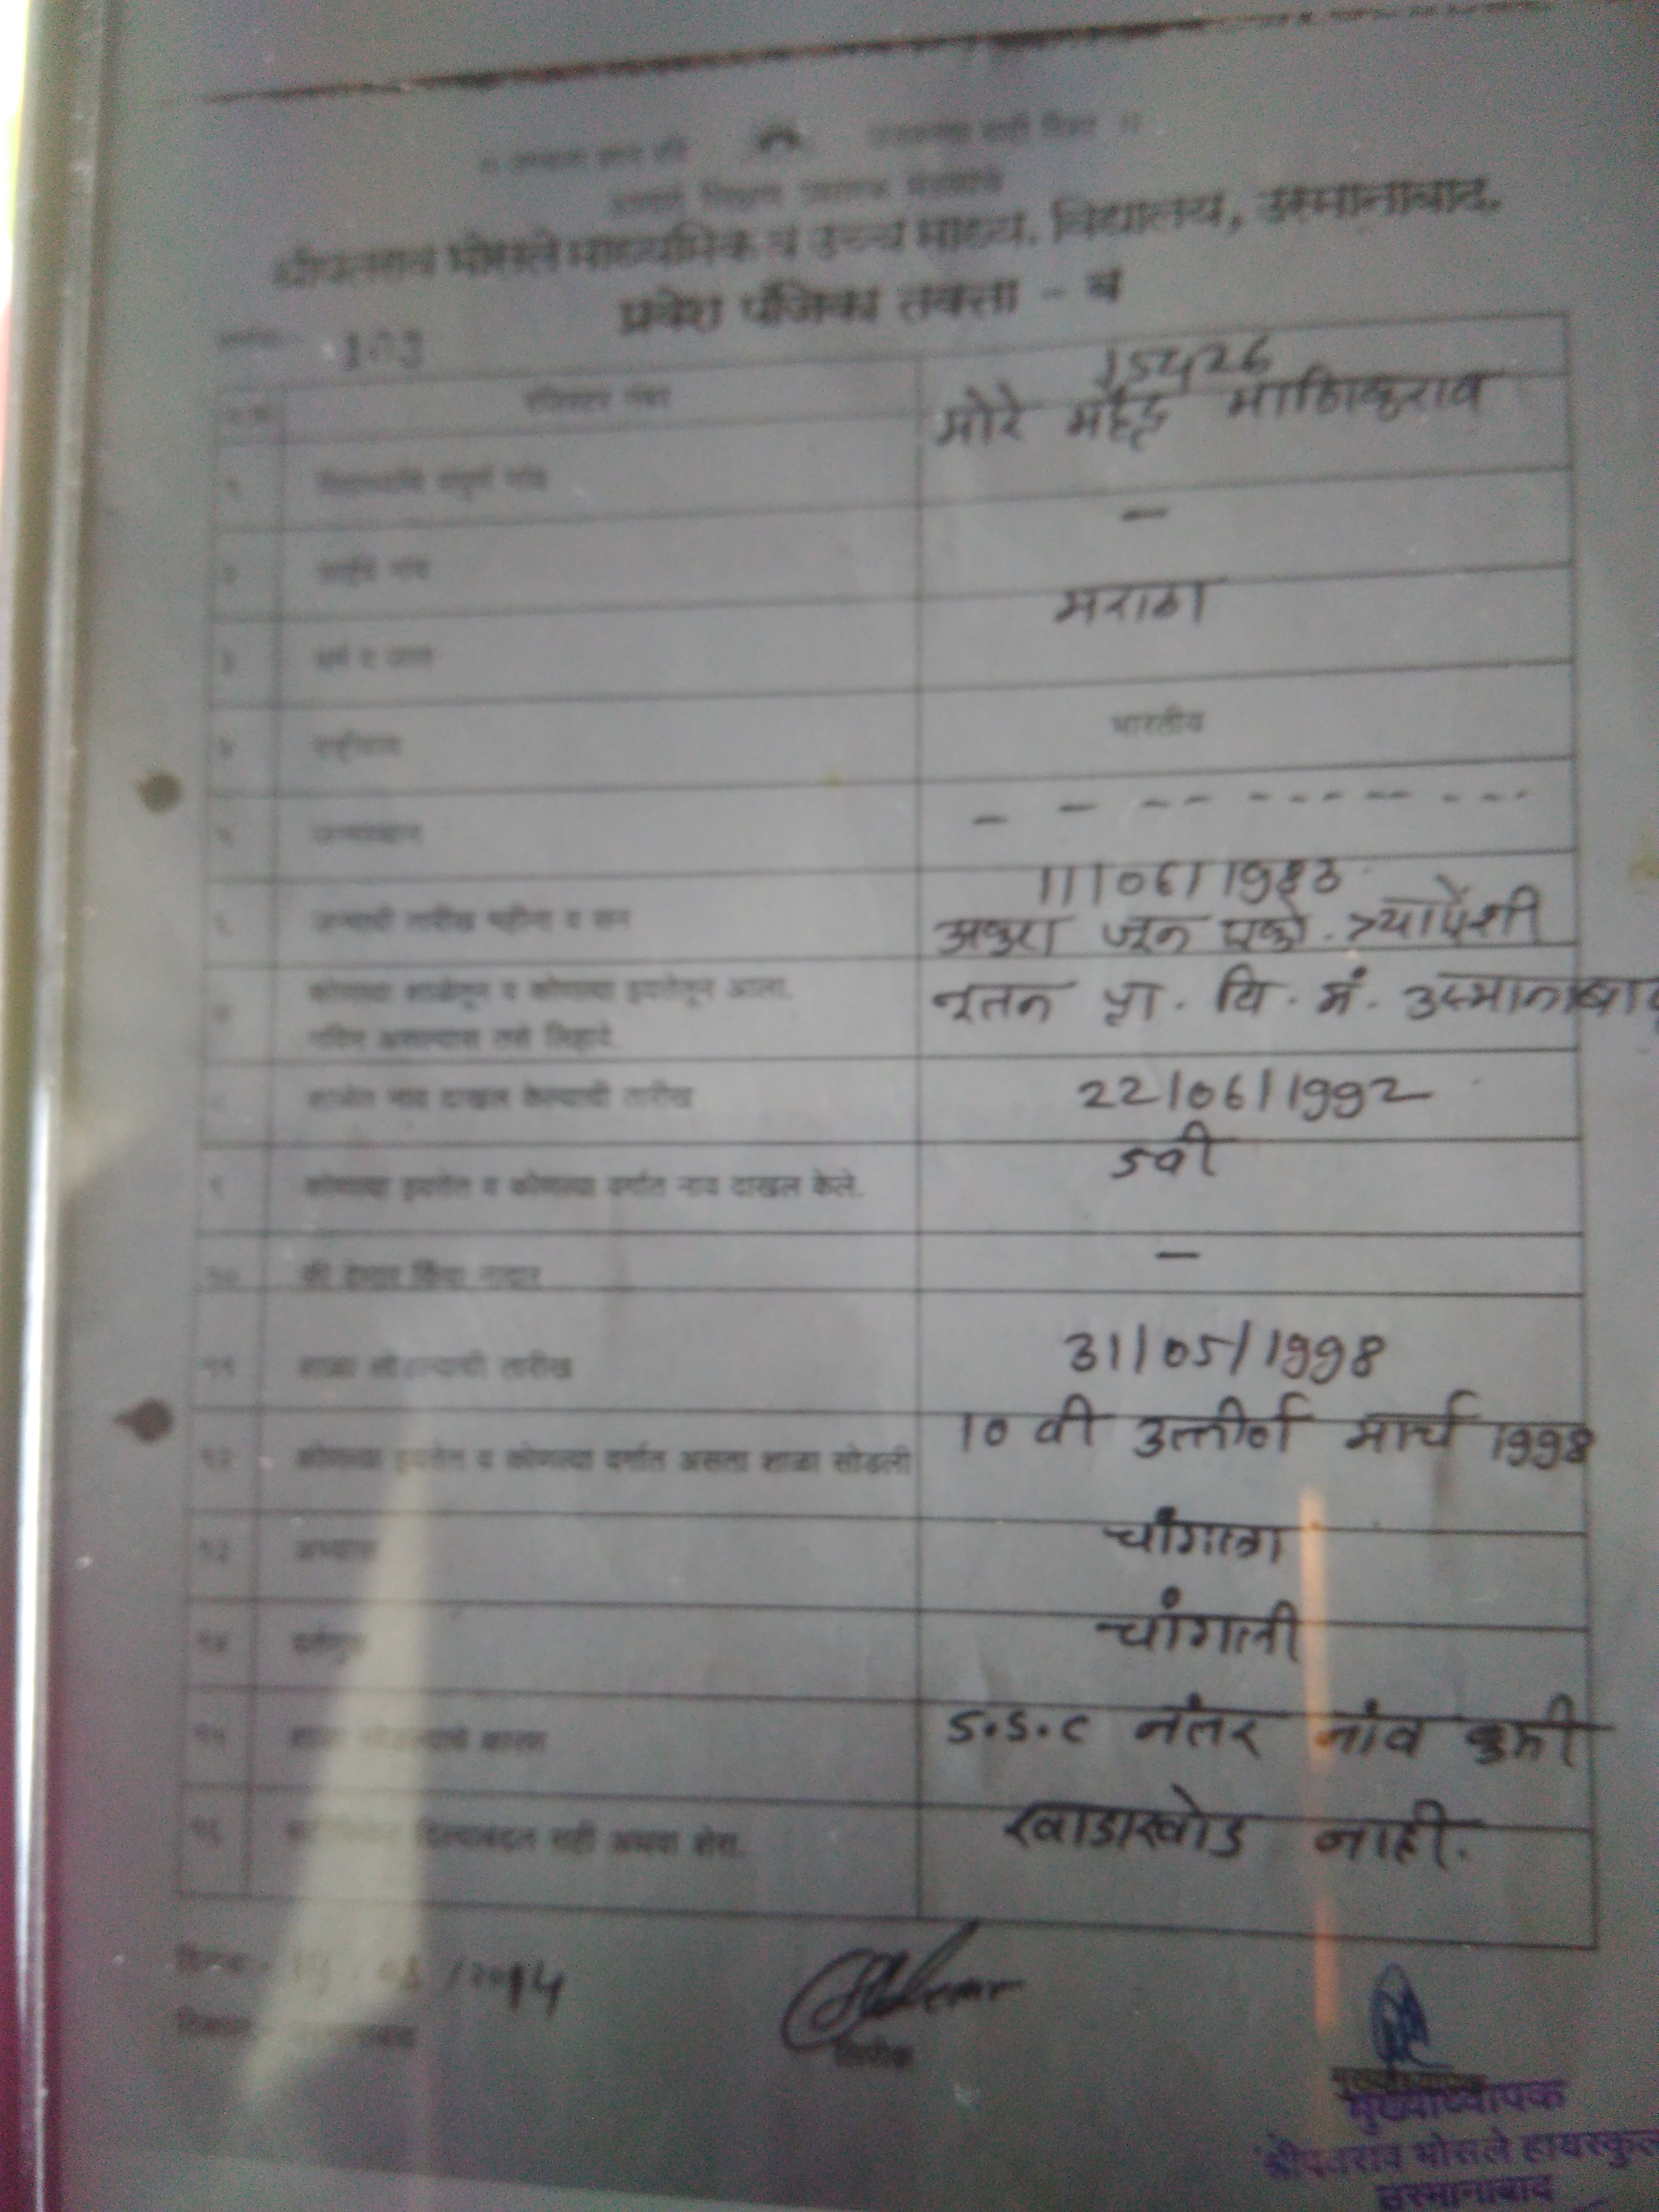 श्रीपतराव भोसले माध्यमिक व उच्च माध्य. विद्यालय, उस्मानाबाद.
प्रवेश पंजिका तक्ता - ब
103
रजिस्टर नंबर 15426
मोरे महेंद्र माणिकराव
१ विद्यार्थ्याचे संपूर्ण नांव
२ आईचे नाव —
३ धर्म व जात मराठा
४ राष्ट्रीयत्व भारतीय
५ जन्मस्थान
11/06/1983
६ जन्माची तारीख महीना व सन अकरा जून एको. त्र्याऐंशी
७ कोणत्या शाळेतून व कोणत्या इयत्तेतून आला. नूतन प्रा. वि. मं. उस्मानाबाद
नविन असल्यास तसे लिहावे.
८ शाळेत नाव दाखल केल्याची तारीख 22/06/1992
९ कोणत्या इयत्तेत व कोणत्या वर्गात नाव दाखल केले. 5वी
१० फी देणार किंवा नादार —
११ शाळा सोडल्याची तारीख 31/05/1998
१२ कोणत्या इयत्तेत व कोणत्या वर्गात असता शाळा सोडली 10 वी उत्तीर्ण मार्च 1998
१३ अभ्यास चांगला
१४ वर्तणुक चांगली
१५ शाळा सोडल्याचे कारण S.S.C नंतर नांव कमी
१६ दिल्याबद्दल सही अथवा शेरा. खाडाखोड नाही.
दिनांक- /2014
लिपीक
मुख्याध्यापक
मुख्याध्यापक
श्रीपतराव भोसले हायस्कुल
उस्मानाबाद